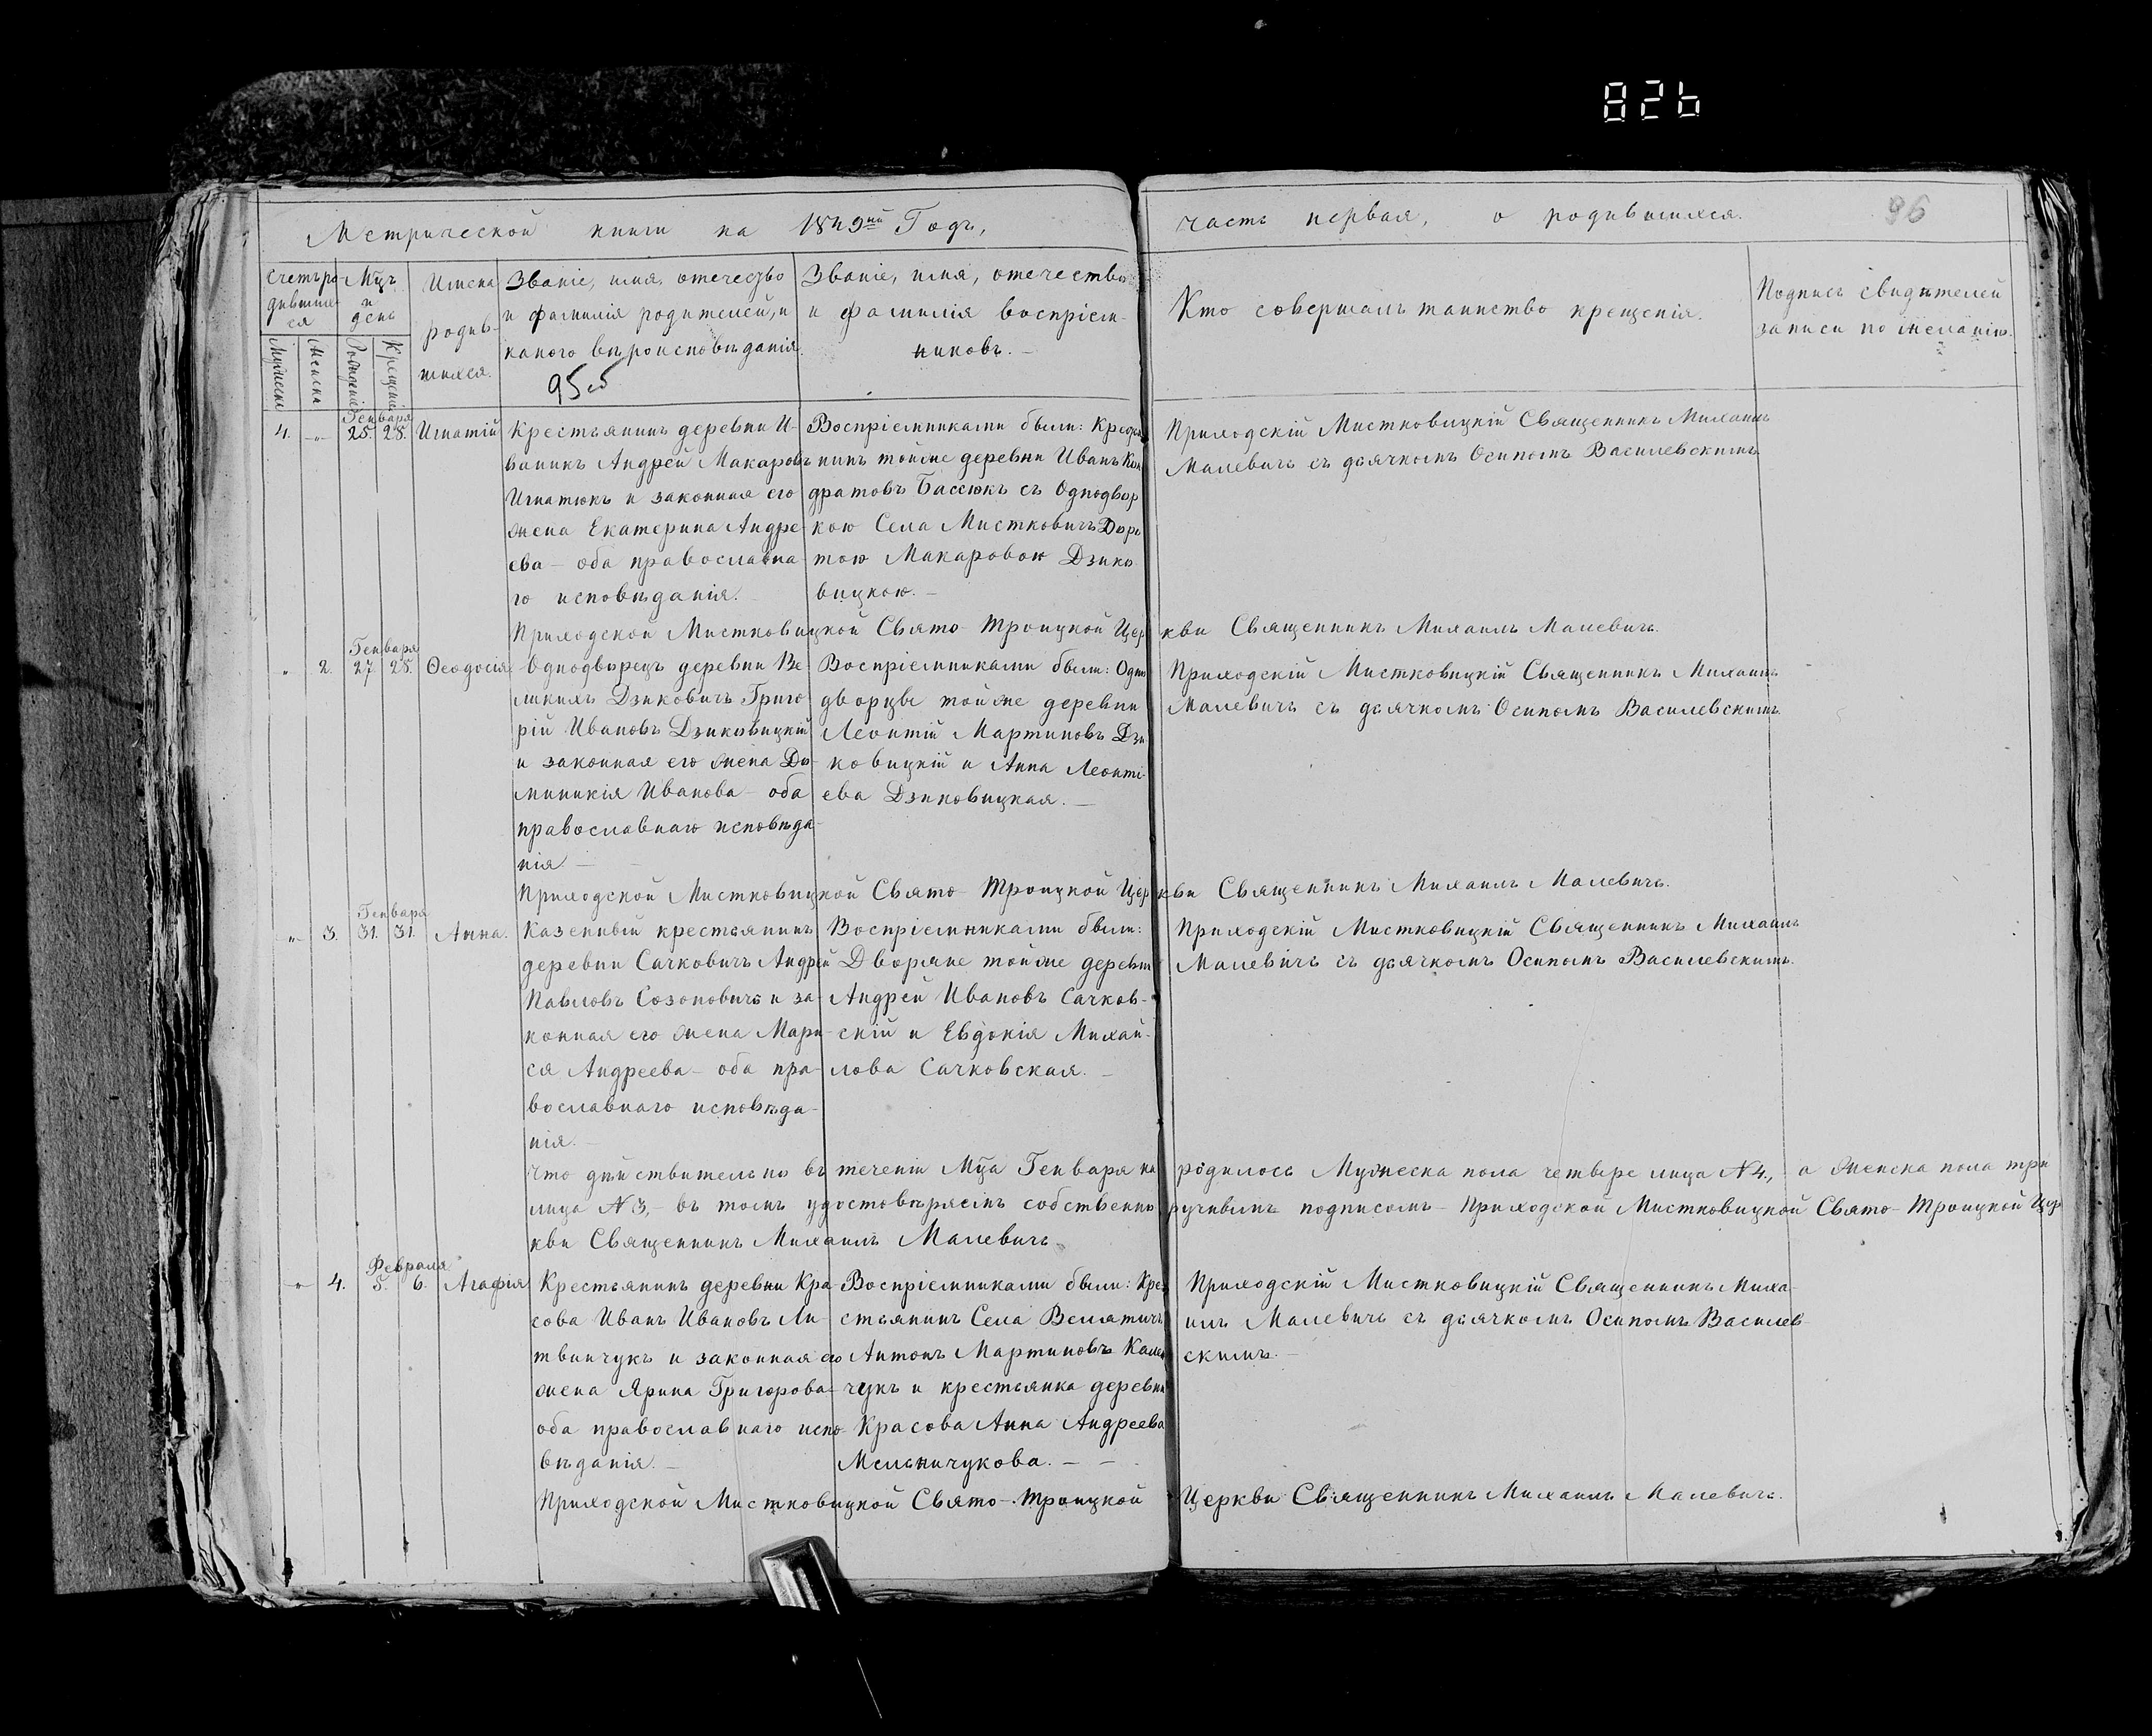 826
Метрической книги на 1849ый Годъ,
часть первая, о родившихся.
96
Счетъ ро
дивших
ся
Мцъ
и
день
Имена
родив-
шихся.
Званіе, имя, отечество
и фамилія родителей, и
какого вѣроисповѣданія.
95об
Званіе, имя, отечество
и фамилія воспріем-
никовъ. —
Кто совершалъ таинство крещенія.
Подпись свидѣтелей
записи по желанію.
Мужеска
Женска
Рожденіе
Крещеніе
Генваря
4. „ 25. 28. Игнатій
Крестьянинъ деревни И-
ваникъ Андрей Макаровъ
Игнатюкъ и законная его
жена Екатерина Андре-
ева — оба православна-
го исповѣданія. —
Воспріемниками были: Кресть
нинъ тойже деревни Иванъ Кон
дратовъ Басюкъ съ Однодвор
кою Села Мистковичъ Доро
тою Макаровою Дзико
вицкою. —
Приходскій Мистковицкій Священникъ Михаилъ
Малевичъ съ дьячкомъ Осипомъ Василевскимъ.
Приходской Мистковицкой Свято-Троицкой Цер
кви Священникъ Михаилъ Малевичъ.
Генваря
„ 2. 27 28. Ѳеодосія
Однодворецъ деревни Ве
ликихъ Дзиковичъ Григо
рій Ивановъ Дзиковицкій
и законная его жена До-
миникія Иванова — оба
православнаго исповѣда-
нія. —
Воспріемниками были: Одно
дворцы тойже деревни
Леонтій Мартиновъ Дзи
ковицкій и Анна Леонті-
ева Дзиковицкая. —
Приходскій Мистковицкій Священникъ Михаилъ
Малевичъ съ дьячкомъ Осипомъ Василевскимъ.
Приходской Мистковицкой Свято-Троицкой Цер
кви Священникъ Михаилъ Малевичъ.
Генваря
„ 3. 31. 31. Анна.
Казенный крестьянинъ
деревни Сачковичъ Андрей
Павловъ Созоновичъ и за-
конная его жена Мари-
ся Андреева — оба пра-
вославнаго исповѣда-
нія. —
Воспріемниками были:
Дворяне тойже деревни
Андрей Ивановъ Сачков-
скій и Евдокія Михай-
лова Сачковская. —
Приходскій Мистковицкій Священникъ Михаилъ
Малевичъ съ дьячкомъ Осипомъ Василевскимъ.
Что дѣйствительно въ теченіи Мца Генваря на
родилось Мужеска пола четыре лица №4., а женска пола три
лица №3, — въ томъ удостовѣряемъ собственно
ручнымъ подписомъ — Приходской Мистковицкой Свято-Троицкой Цер
кви Священникъ Михаилъ Малевичъ.
Февраля
„ 4. 5. 6. Агафія
Крестьянинъ деревни Кра-
сова Иванъ Ивановъ Ли-
твинчукъ и законная его
жена Ярина Григорова —
оба православнаго испо-
вѣданія. —
Воспріемниками были: Кре
стьянинъ Села Велятичъ
Антонъ Мартиновъ
чукъ и крестьянка деревни
Красова Анна Андреева
Мельничукова. — —
Приходскій Мистковицкій Священникъ Миха-
илъ Малевичъ съ дьячкомъ Осипомъ Василев-
скимъ. —
Приходской Мистковицкой Свято-Троицкой
Церкви Священникъ Михаилъ Малевичъ.